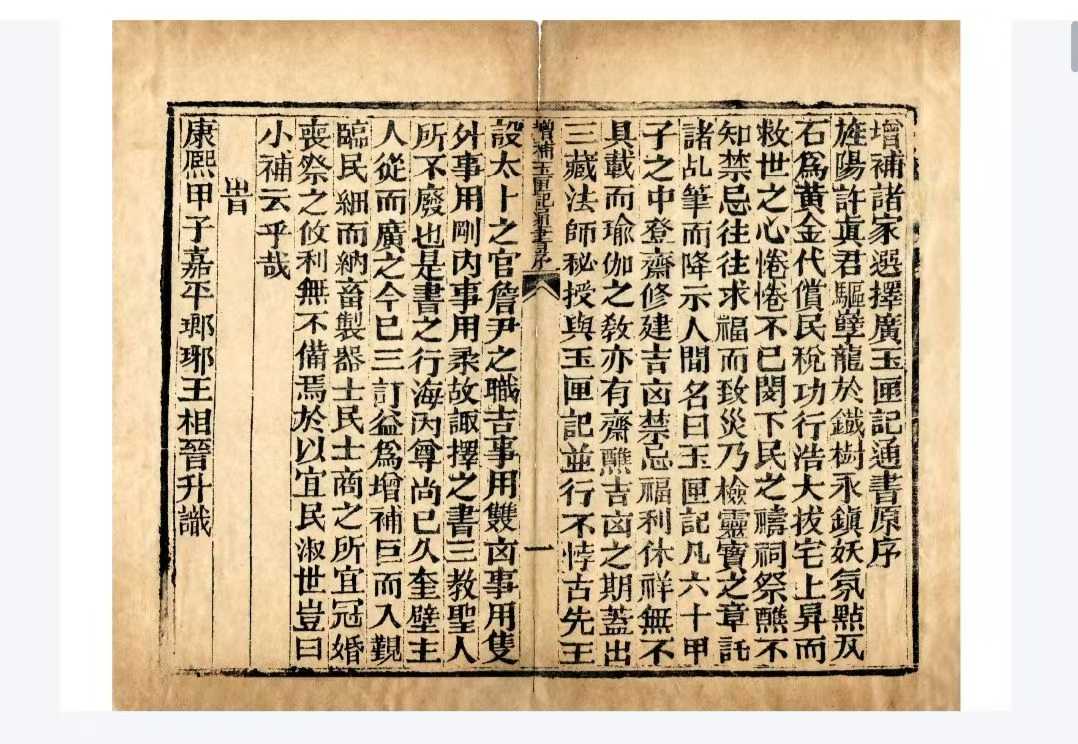 增補諸家選擇廣玉匣記通書原序
旌陽許眞君驅孽龍於鐵樹永鎮妖氛點瓦
石爲黃金代償民稅功行浩大拔宅上昇而
救世之心惓惓不已閔下民之禱祠祭醮不
知禁忌往往求福而致災乃檢靈寶之章託
諸乩筆而降示人間名曰玉匣記凡六十甲
子之中登齋修建吉凶禁忌福利休祥無不
具載而瑜伽之教亦有齋醮吉凶之期蓋出
三藏法師秘授與玉匣記並行不悖古先王
增補玉匣記通書序 一
設太卜之官詹尹之職吉事用雙凶事用隻
外事用剛內事用柔故諏擇之書三教聖人
所不廢也是書之行海內尊尚已久奎壁主
人從而廣之今已三訂益爲增補巨而入覲
臨民細而納畜製器士民士商之所宜冠婚
喪祭之攸利無不備焉於以宜民淑世豈曰
小補云乎哉
旹
康熙甲子嘉平瑯琊王相晉升識